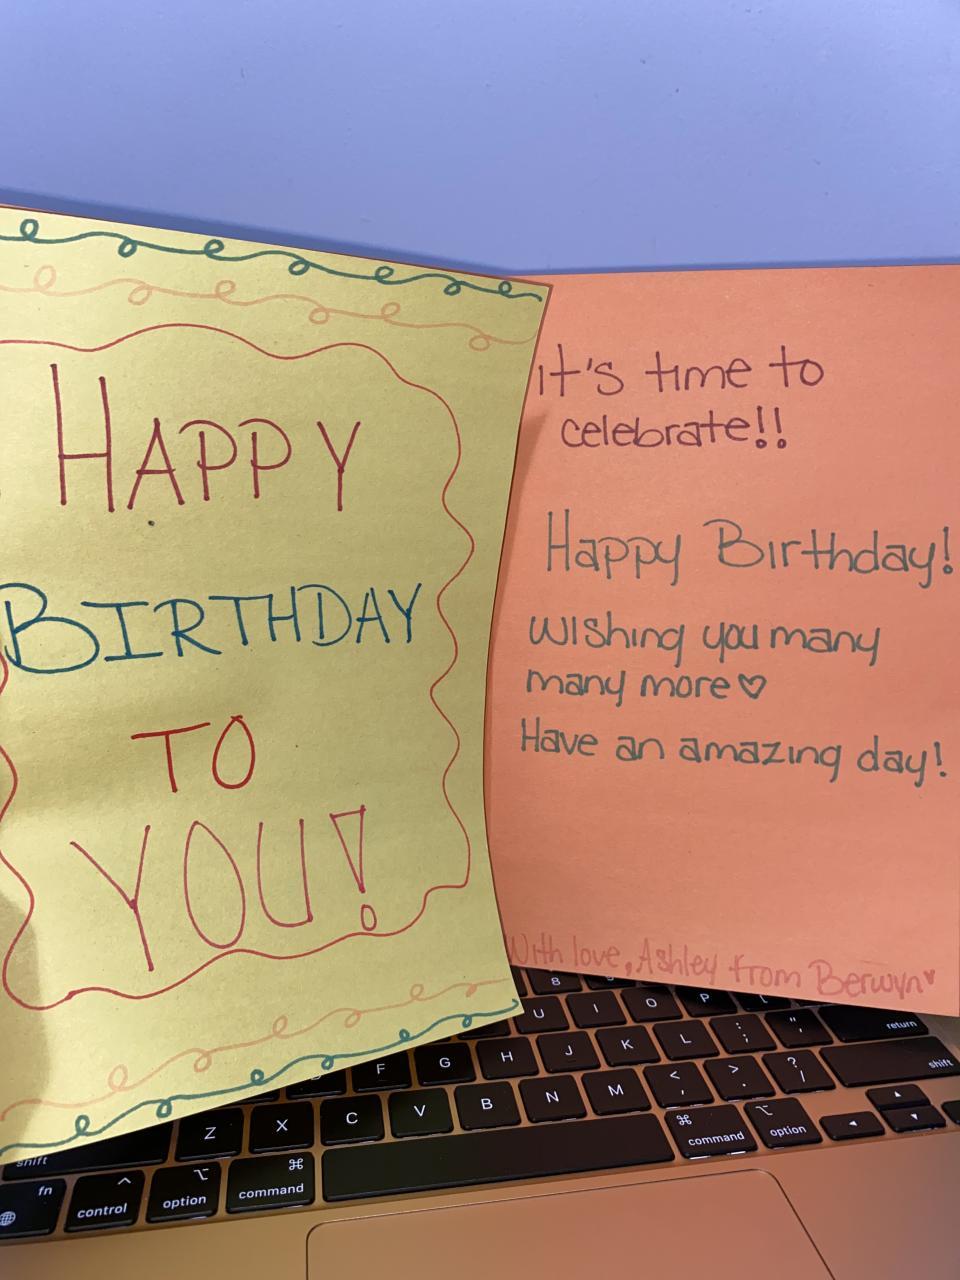 HAPPY
BIRTHDAY
TO
YOU!
it's time to
celebrate!!
Happy Birthday!
wishing you many
many more♡
Have an amazing day!
With love, Ashley from Berwyn♥
8
U I O P
return
F G H J K L : ; " '
shift
shift Z X C V B N M < , > . ? /
fn control ^ option ⌥ command ⌘ ⌘ command ⌥ option ◀ ▲ ▼